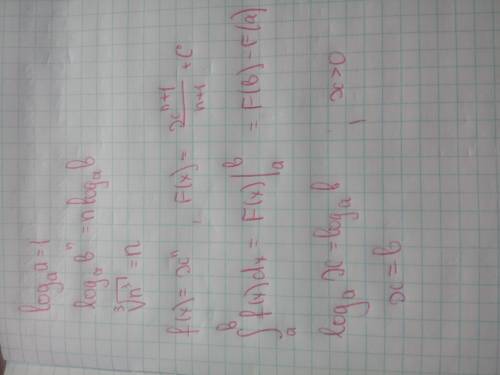 logₐ a = 1
logₐ bⁿ = n logₐ b
∛n³ = n
f(x) = xⁿ, F(x) = xⁿ⁺¹/n+1 + C
∫ₐᵇ f(x) dx = F(x)|ₐᵇ = F(b) - F(a)
logₐ x = logₐ b, x > 0
x = b